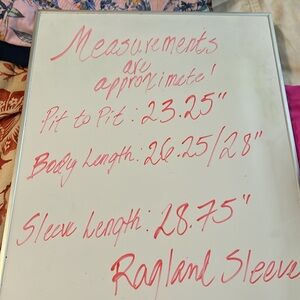 Measurements
are
approximate!
Pit to Pit: 23.25"
Body Length: 26.25/28"
Sleeve Length: 28.75"
Ragland Sleeve